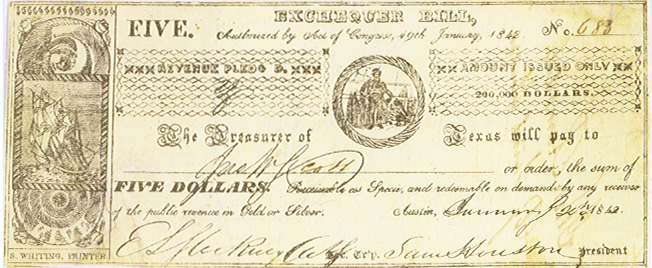 EXCHEQUER BILL,
FIVE.
Authorized by Act of Congress, 29th January, 1842.
No. 683
REVENUE PLEDG'D.
AMOUNT ISSUED ONLY
200,000 DOLLARS.
The Treasurer of Texas will pay to
or order, the sum of
FIVE DOLLARS. Receivable as Specie, and redeemable on demand by any receiver
of the public revenue in Gold or Silver. Austin, 1842.
Sam Houston President
FIVE
S. WHITING, PRINTER